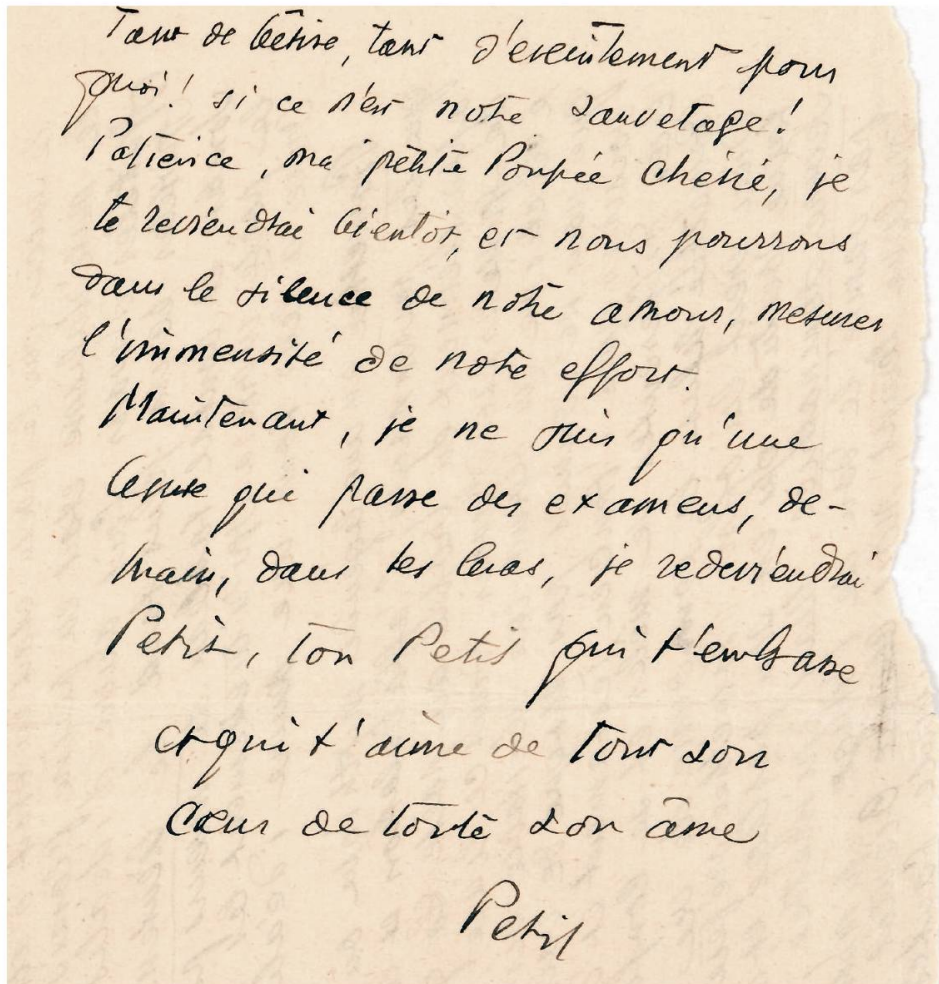 Tant de bêtise, tant d'éreintement pour
quoi! si ce n'est notre sauvetage!
Patience, ma petite Poupée chérie, je
te reviendrai bientôt, et nous pourrons
dans le silence de notre amour, mesurer
l'immensité de notre effort.
Maintenant, je ne suis qu'une
brute qui passe des examens, de-
main, dans tes bras, je redeviendrai
Petit, ton Petit qui t'embrasse
et qui t'aime de tout son
cœur de toute son âme
Petit